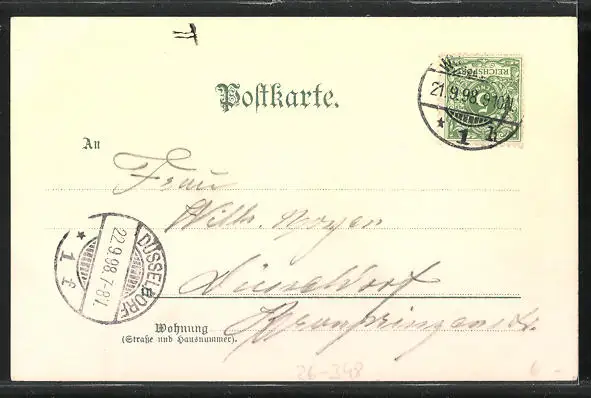 Postkarte.
REICHSPOST
5
21.9.98. 9-10N.
* 1 h
An
Frau
Wilh. Meyer
Düsseldorf
Kronprinzenstr.
DÜSSELDORF
22.9.98.7-8V.
* 1. f
in
Wohnung
(Straße und Hausnummer).
26-348
6 -